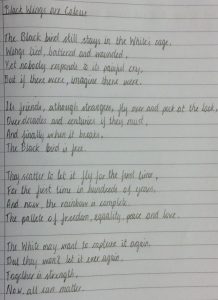 Black Wings are Colour
The Black bird still stays in the White's cage,
Wings tied, battered and wounded,
Yet nobody responds to its painful cry,
But if there were, imagine there were.
Its friends, although strangers, fly over and peck at the lock,
Over decades and centuries if they must,
And finally when it breaks,
The Black bird is free.
They scatter to let it fly for the first time,
For the first time in hundreds of years,
And now, the rainbow is complete.
The pallete of freedom, equality, peace and love.
The White may want to capture it again,
But they won't let it ever again.
Together is strength,
Now, all can matter.